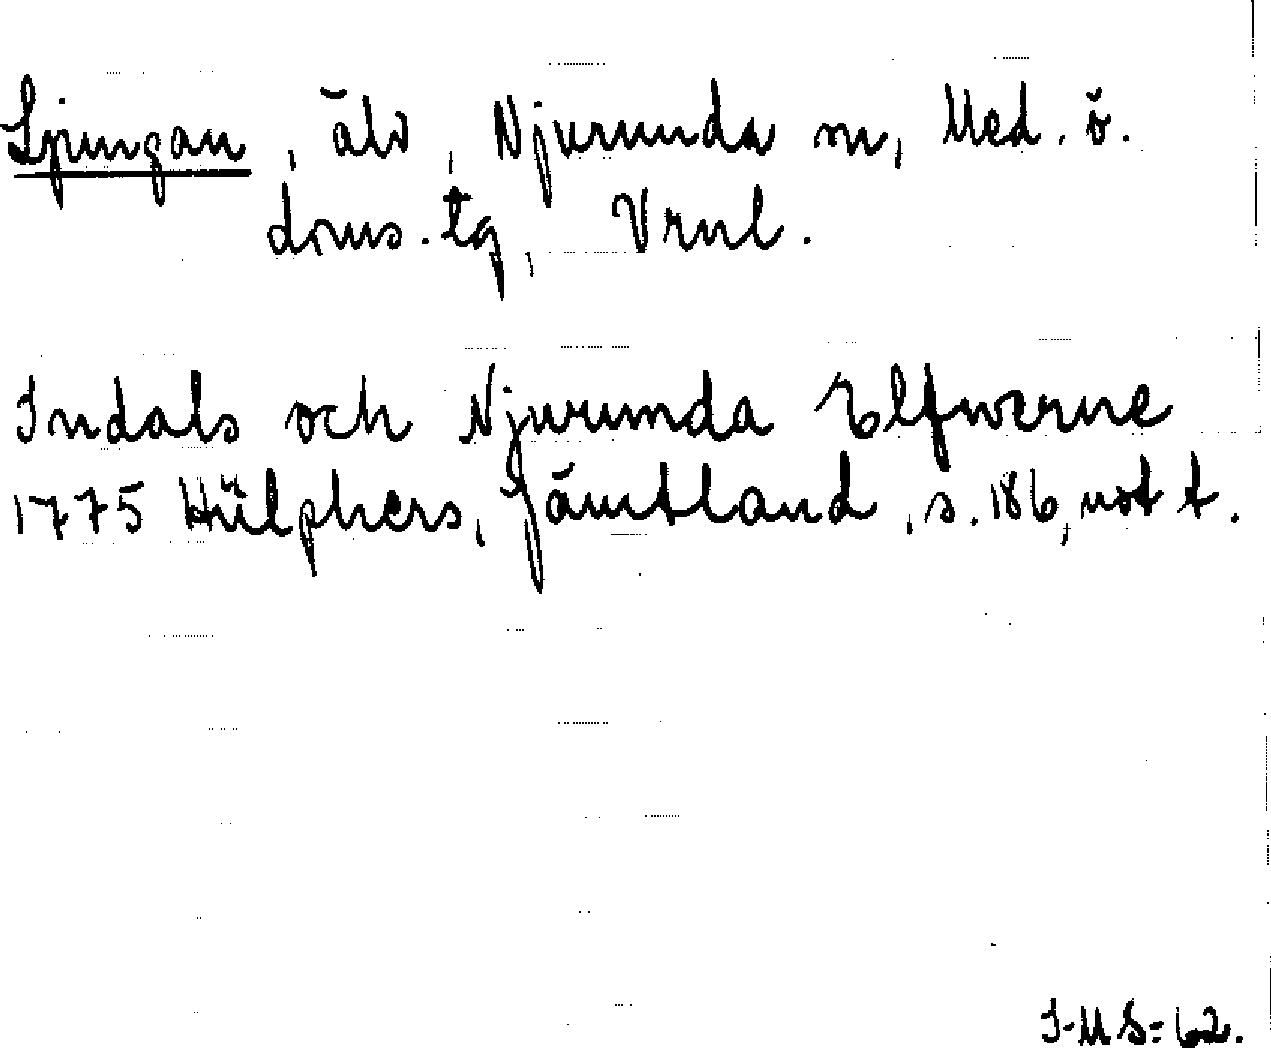 Ljungan, älv, Njurunda sn, Med. ö.
doms.tg, Vrnl.
Indals och Njurunda Elfwerne
1775 Hülphers, Jämtland, s. 186, not t.
I-MS-62.